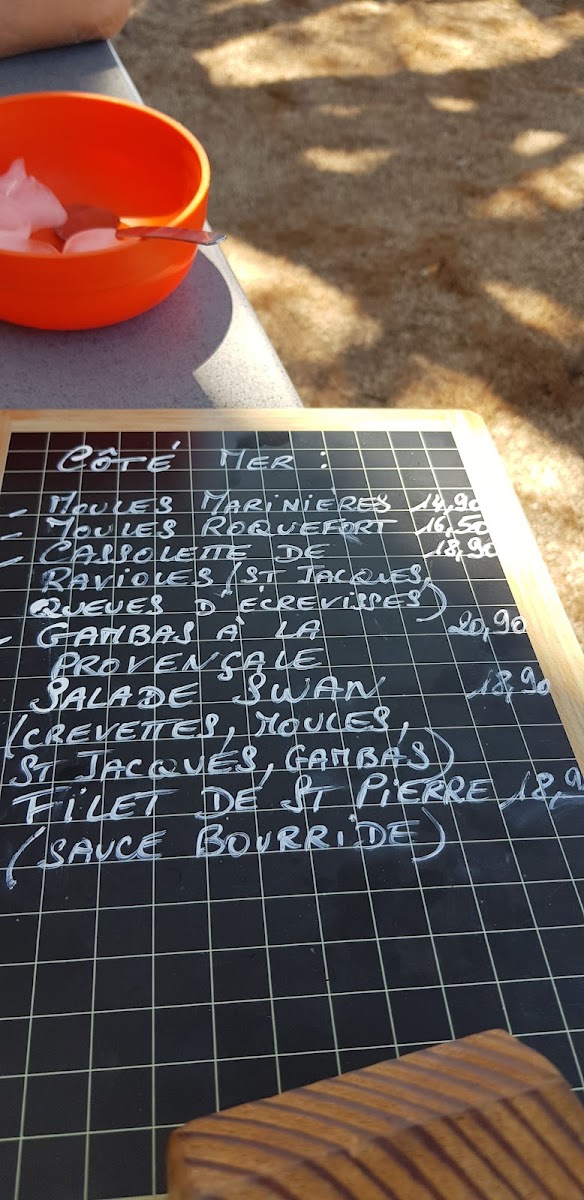 CÔTÉ MER :
- MOULES MARINIERES 14,90
- MOULES ROQUEFORT 16,50
- CASSOLETTE DE 18,90
RAVIOLES (ST JACQUES,
QUEUES D'ÉCREVISSES)
- GAMBAS À LA 20,90
PROVENÇALE
SALADE SWAN 18,90
(CREVETTES, MOULES,
ST JACQUES, GAMBAS)
FILET DE ST PIERRE 18,9
(SAUCE BOURRIDE)